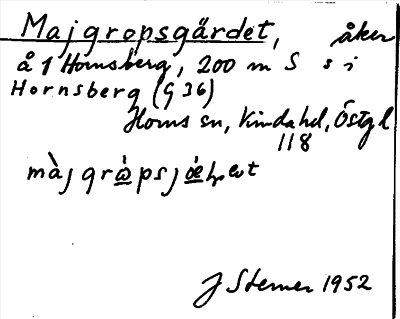 Majgropsgärdet, åker
å 1 Hornsberg, 200 m S s i
Hornsberg (G 36)
Horns sn, Kinda hd, Östgl
118
J Sterner 1952